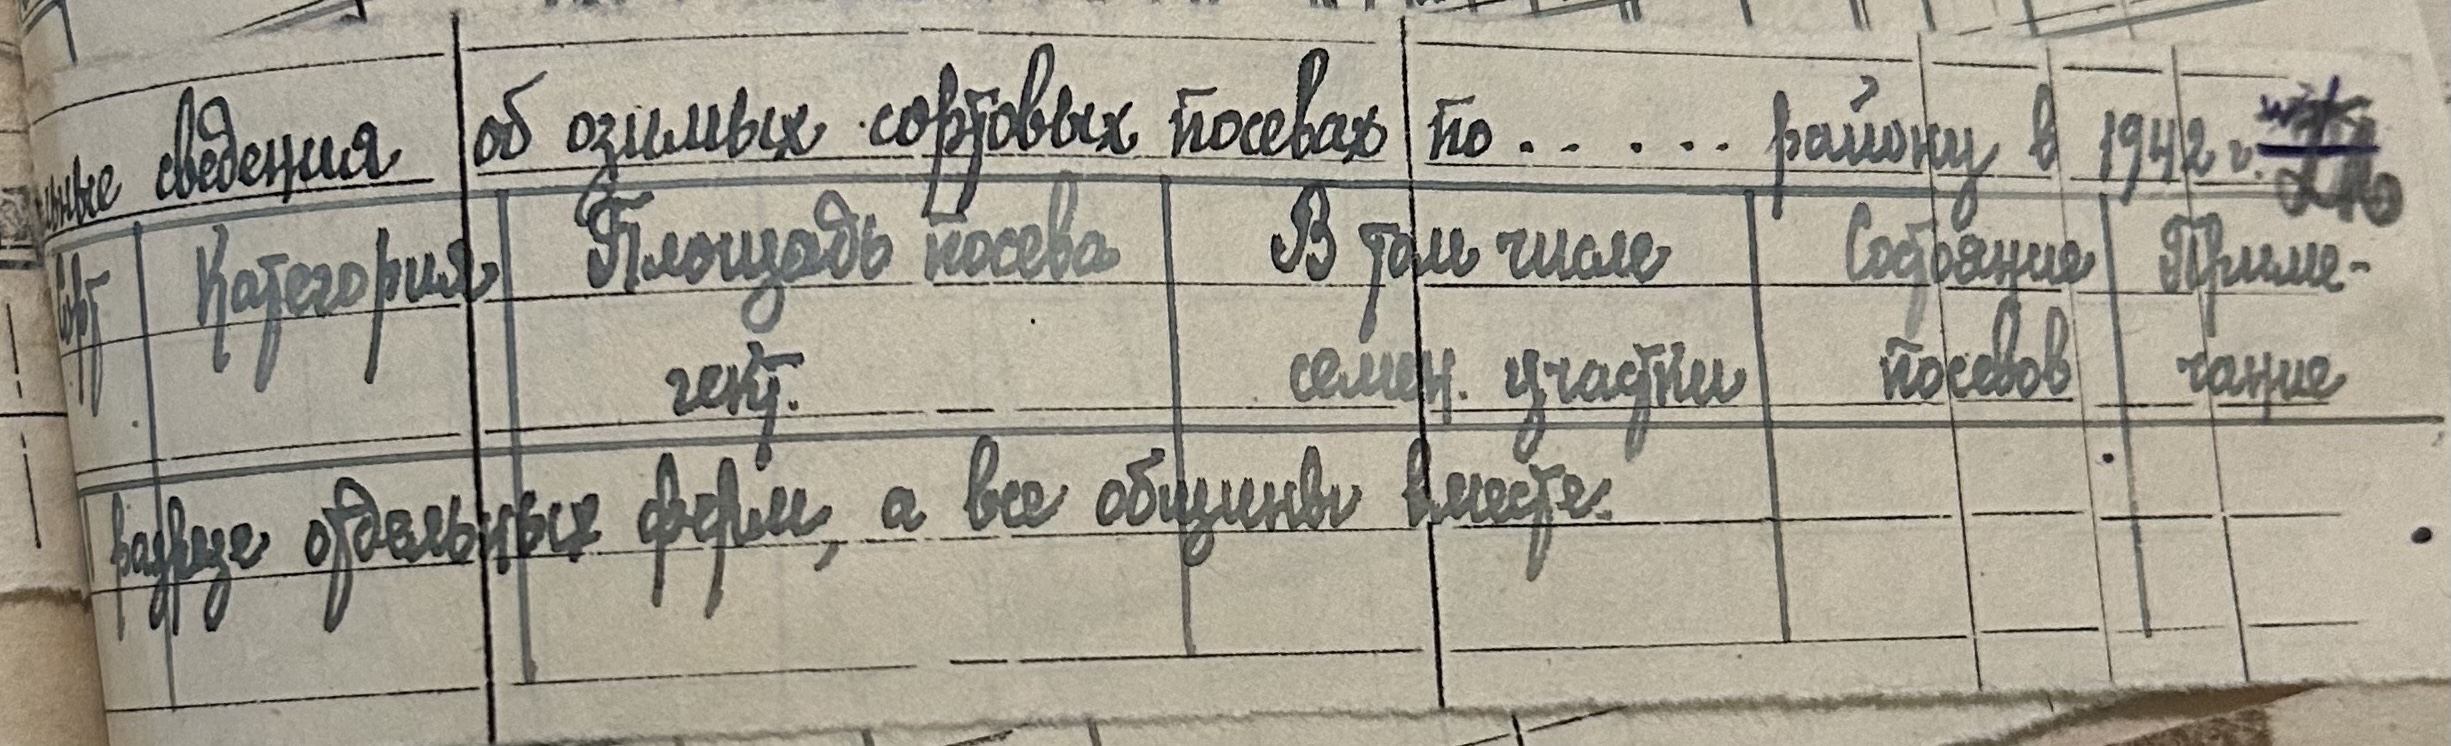 сведения об озимых сортовых посевах по . . . . . . району в 1942 г.
Сорт Категория Площадь посева гект. В том числе семен. участки Состояние посевов Приме-чание
разрезе отдельных ферм, а все общины вместе.